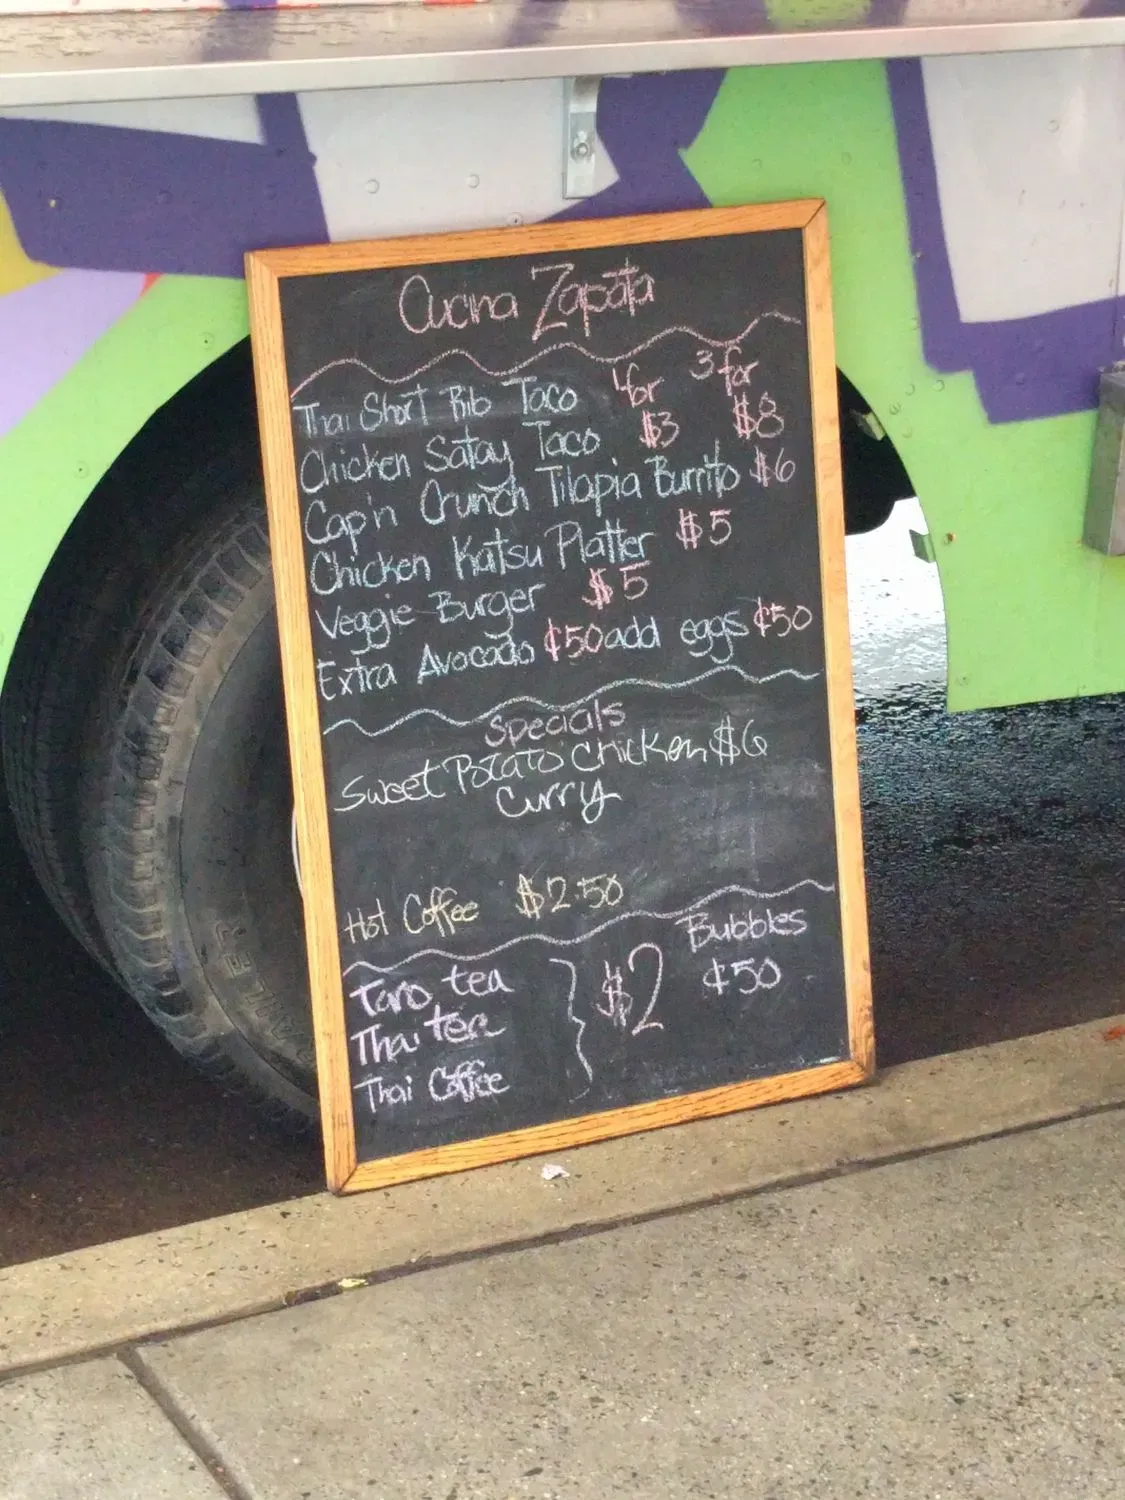 Cucina Zapata
Thai Short Rib Taco 1 for 3 for
Chicken Satay Taco $3 $8
Cap'n Crunch Tilapia Burrito $6
Chicken Katsu Platter $5
Veggie Burger $5
Extra Avocado ¢50 add eggs ¢50
Specials
Sweet Potato Chicken $6
Curry
Hot Coffee $2.50
Taro tea
Thai tea
Thai Coffee
$2
Bubbles
¢50